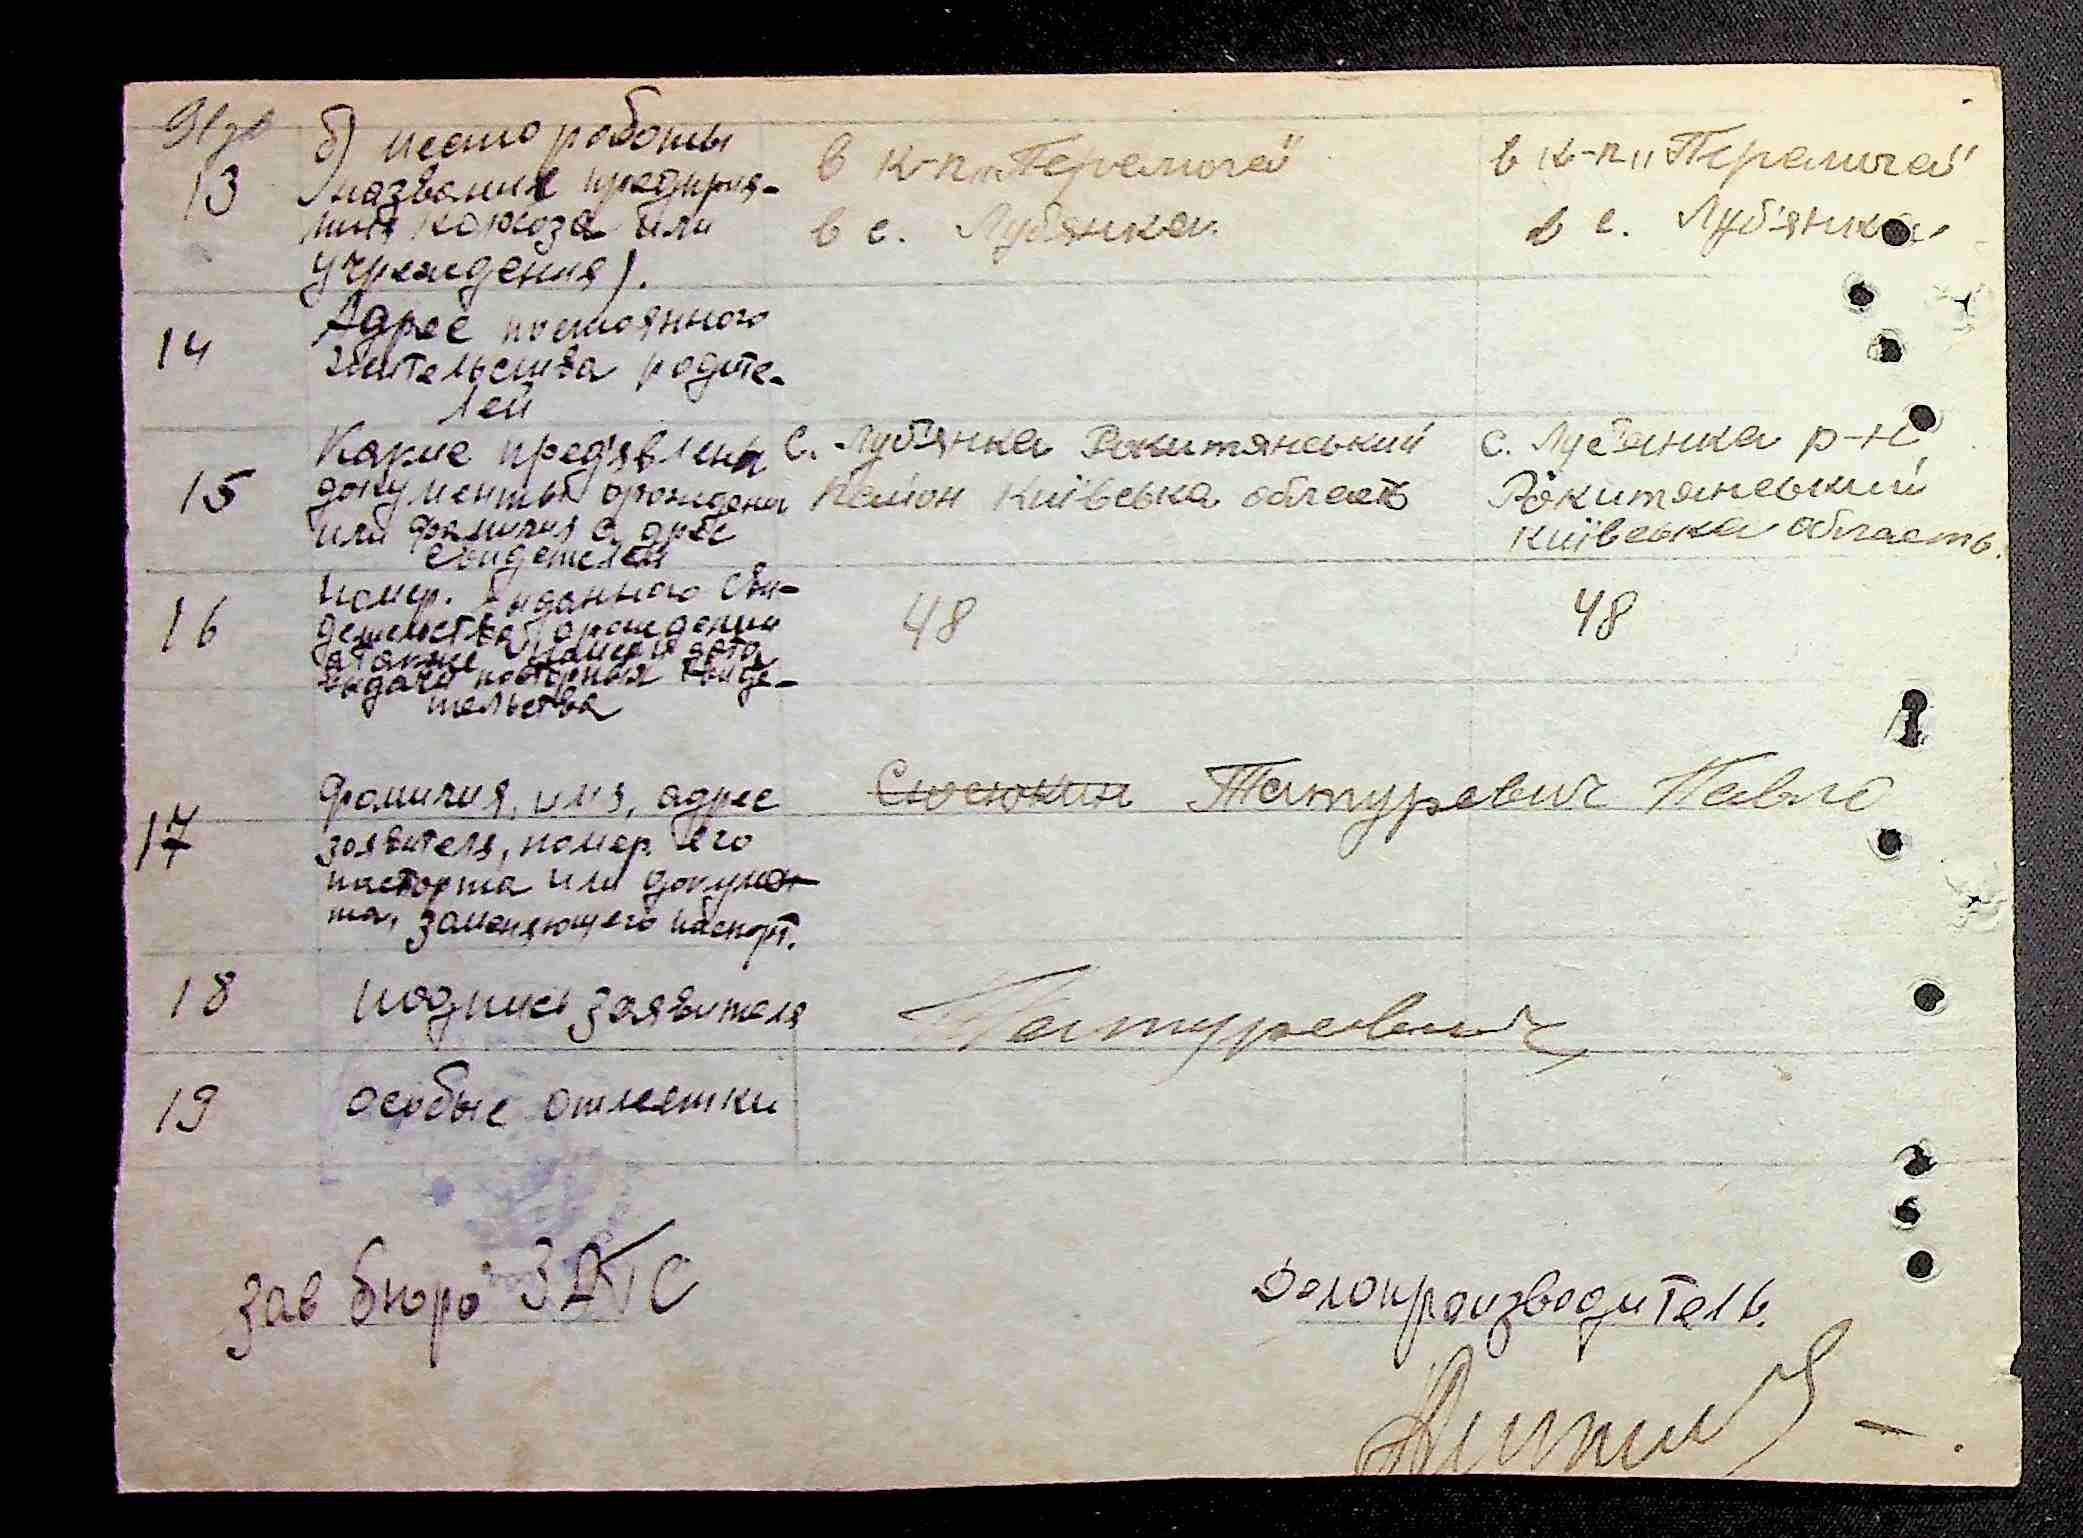 13
б) место работы
в к-п „Перемога"
в к-п „Перемога"
(название предприя-
тия колхоза или
учреждения).
в с. Луб'янка.
в с. Луб'янка
14
Адрес постоянного
жительства родите-
лей
15
Какие пред'явлены
документы о рождении
или фамилия с адрес
свидетелей
с. Луб'янка Рокитянський
Район Київська область
с. Луб'янка р-н
Рокитянський
Київська область.
16
номер. выданного сви-
детельства о рождении
а также номер и дата
выдачи повторных свиде-
тельства
48
48
17
Фамилия, имя, адрес
заявителя, номер его
паспорта или докумен-
та, заменяющего паспорт.
Татуревич Павло
18
подпись заявителя
Татуревич
19
особые отметки
зав бюро ЗАГС
Делопроизводитель.